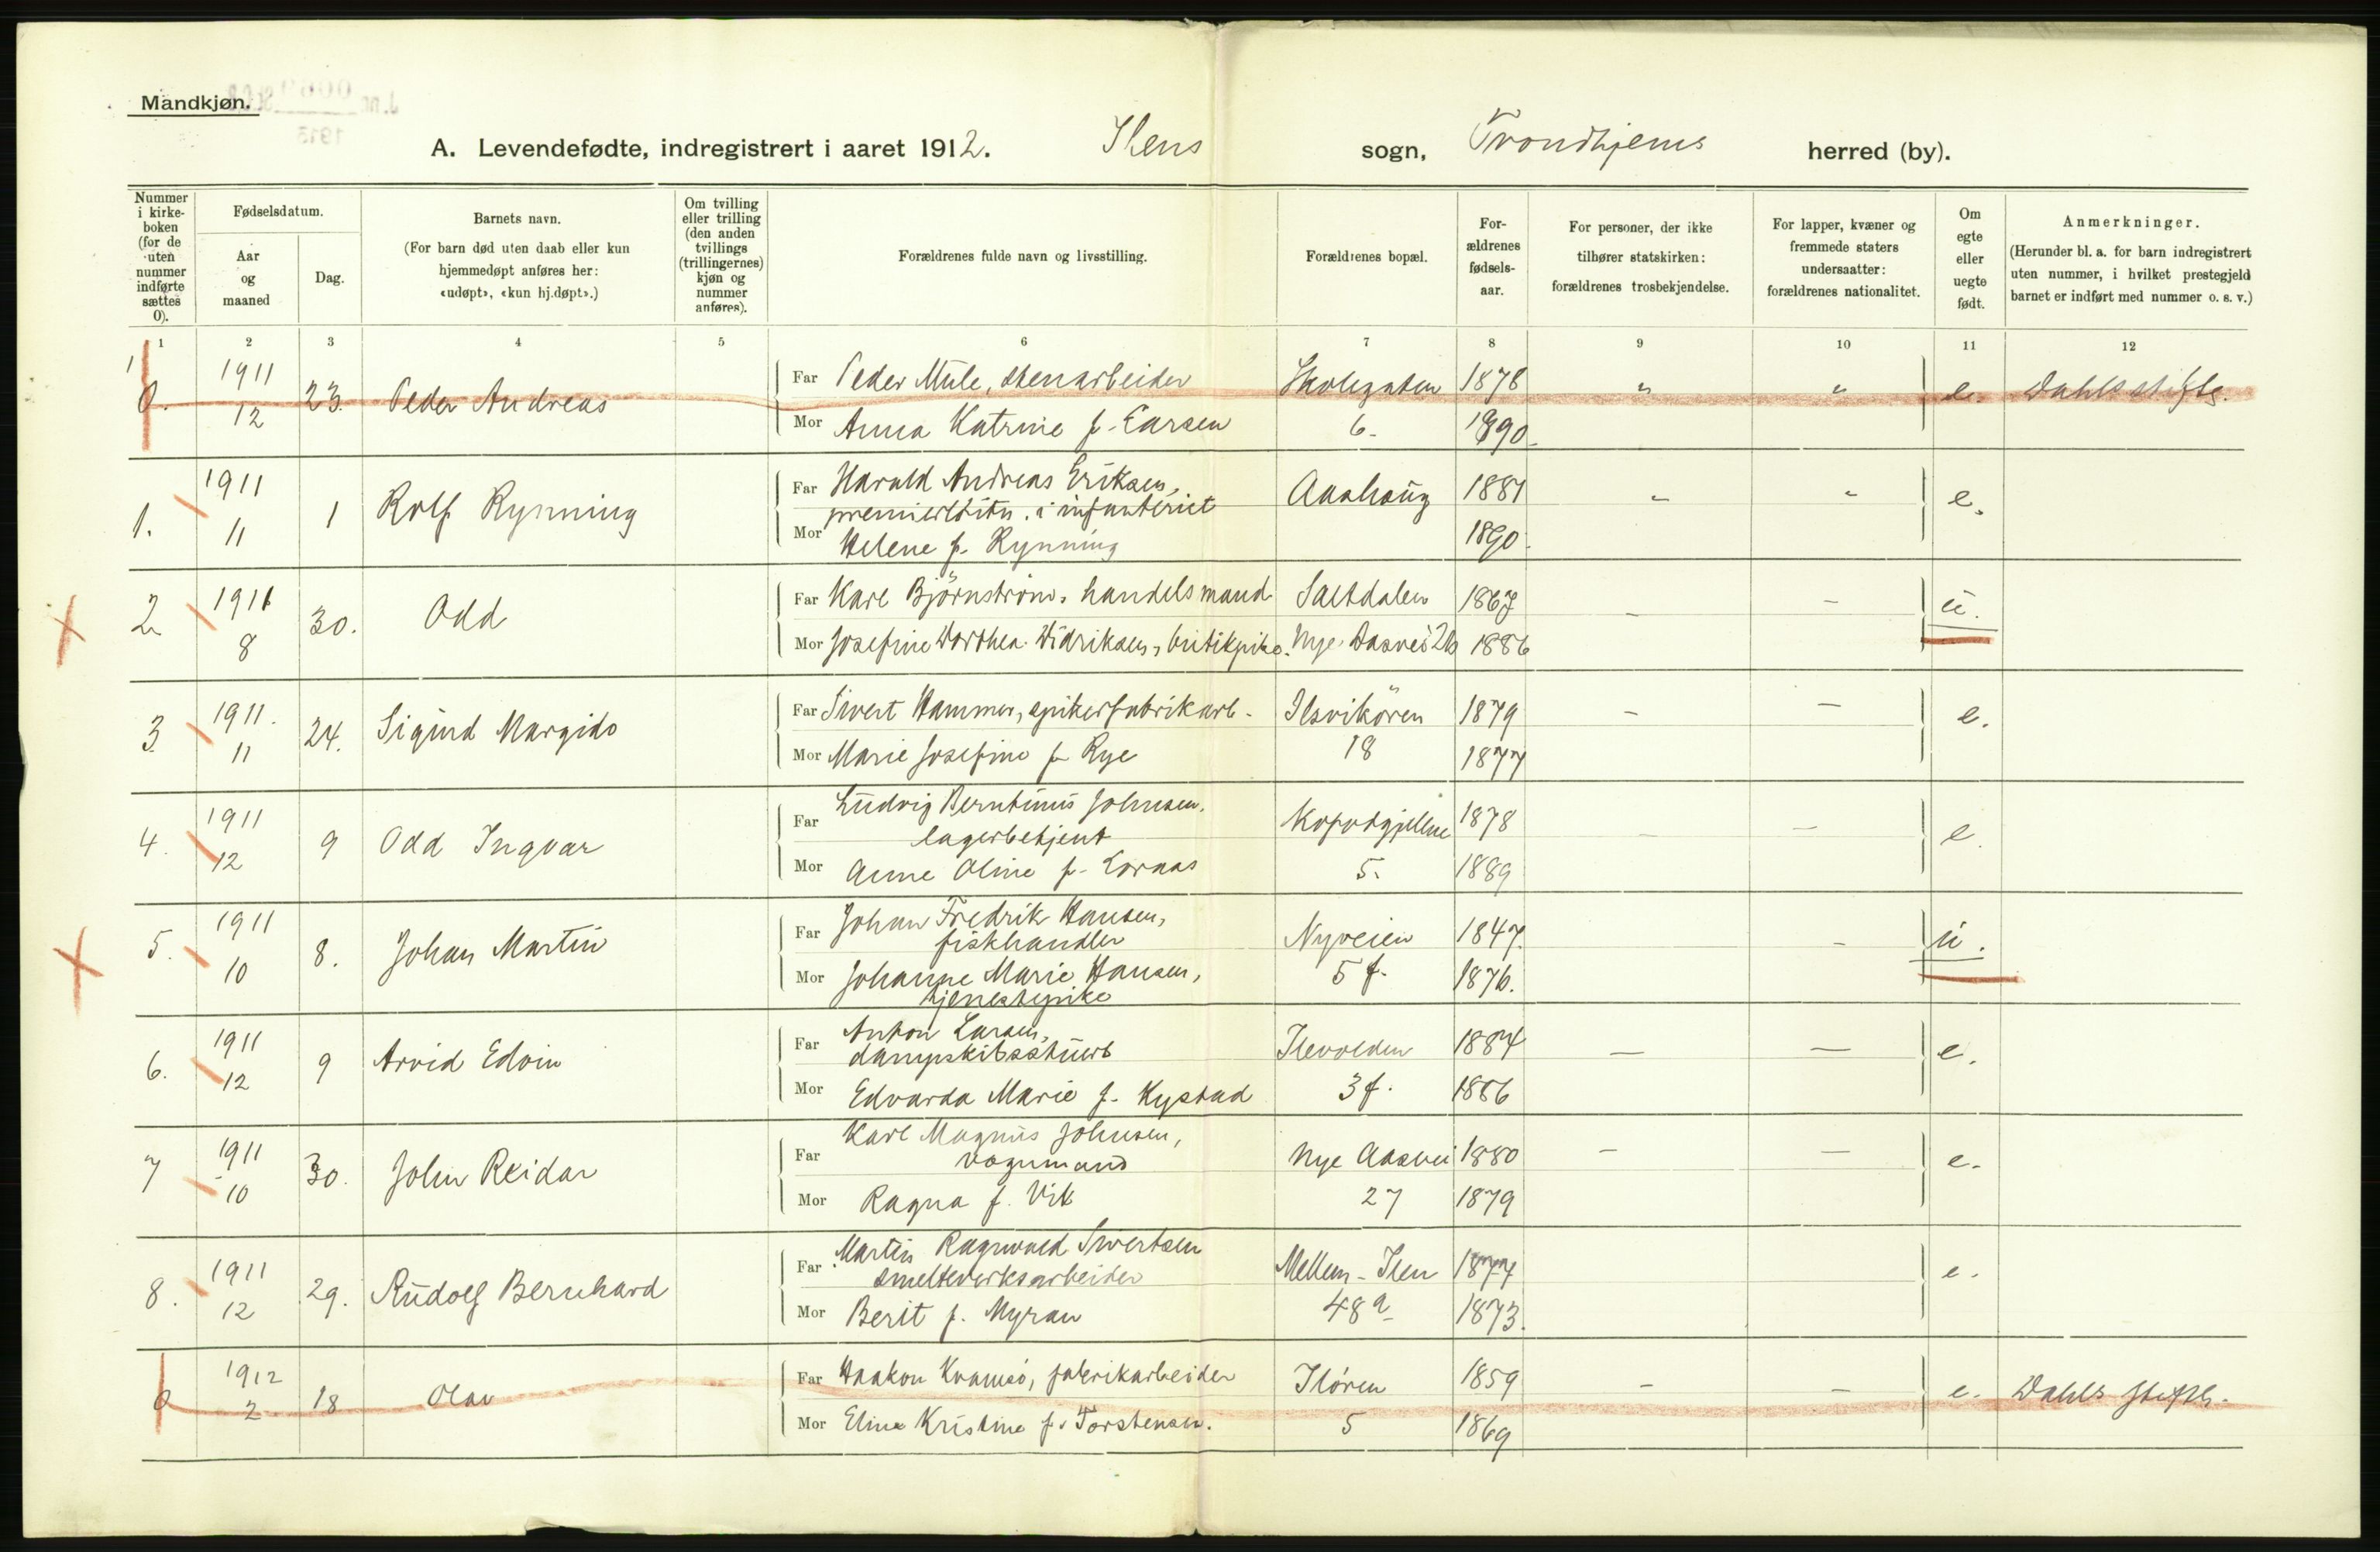 Mandkjøn.
A. Levendefødte, indregistrert i aaret 1912. Ilens sogn, Trondhjems herred (by).
Nummer i kirke-boken (for de uten nummer indførte sættes 0).
Fødselsdatum.
Aar og maaned
Dag.
Barnets navn.
(For barn død uten daab eller kun hjemmedøpt anføres her: «udøpt», «kun hj.døpt».)
Om tvilling eller trilling (den anden tvillings (trillingernes) kjøn og nummer anføres).
Forældrenes fulde navn og livsstilling.
Forældrenes bopæl.
For-ældrenes fødsels-aar.
For personer, der ikke tilhører statskirken: forældrenes trosbekjendelse.
For lapper, kvæner og fremmede staters undersaatter: forældrenes nationalitet.
Om egte eller uegte født.
Anmerkninger.
(Herunder bl. a. for barn indregistrert uten nummer, i hvilket prestegjeld barnet er indført med nummer o. s. v.)
1 2 3 4 5 6 7 8 9 10 11 12
0. 1911 12 23. Peder Andreas
Far Peder Mule, stenarbeider Skolegaten 1878 " " e. Dahls stiftg.
Mor Anna Katrine f. Larsen 6. 1890.
1. 1911 11 1 Rolf Rynning
Far Harald Andreas Eriksen, Aashaug 1881 " " e.
premierløitn. i infanteriet
Mor Helene f. Rynning 1890.
2 1911 8 30. Odd
Far Karl Björnström, handelsmand Saltdalen 1867 – – u.
Mor Josefine Dorthea Didriksen, butikpike. Nye Aasvei 26 1886
3. 1911. 11 24. Sigurd Margido
Far Sivert Hammer, spikerfabrikarb. Ilsvikören 1879 – – e.
Mor Marie Josefine f. Rye 18 1877
4. 1911 12 9 Odd Ingvar
Far Ludvig Berntinus Johnsen, 1878 – – e.
lagerbetjent
Mor Anne Oline f. Lornas 5. 1889
5. 1911 10 8. Johan Martin
Far Johan Fredrik Hansen, Nyveien 1847. – u.
fiskhandler
Mor Johanne Marie Hansen, 5 f. 1876.
tjenestepike
6. 1911 12 9 Arvid Edvin
Far Anton Larsen, Ilevolden 1884 – – e.
dampskibsstuert
Mor Edvarda Marie f. Kystad 3 f. 1886
7 1911 10 30. John Reidar
Far Karl Magnus Johnsen, Nye Aasvei 1880 – – e.
vognmand
Mor Ragna f. Vik 27 1879
8. 1911 12 29. Rudolf Bernhard
Far Martin Ragnvald Sivertsen Mellem-Ilen 1877 e.
smelteverksarbeider
Mor Berit f. Myran 48 a 1873.
0 1912 2 18 Olav
Far Haakon Kvamsö, fabrikarbeider Ilören 1859 – – e. Dahls stiftg.
Mor Eline Kristine f. Torstensen. 5 1869